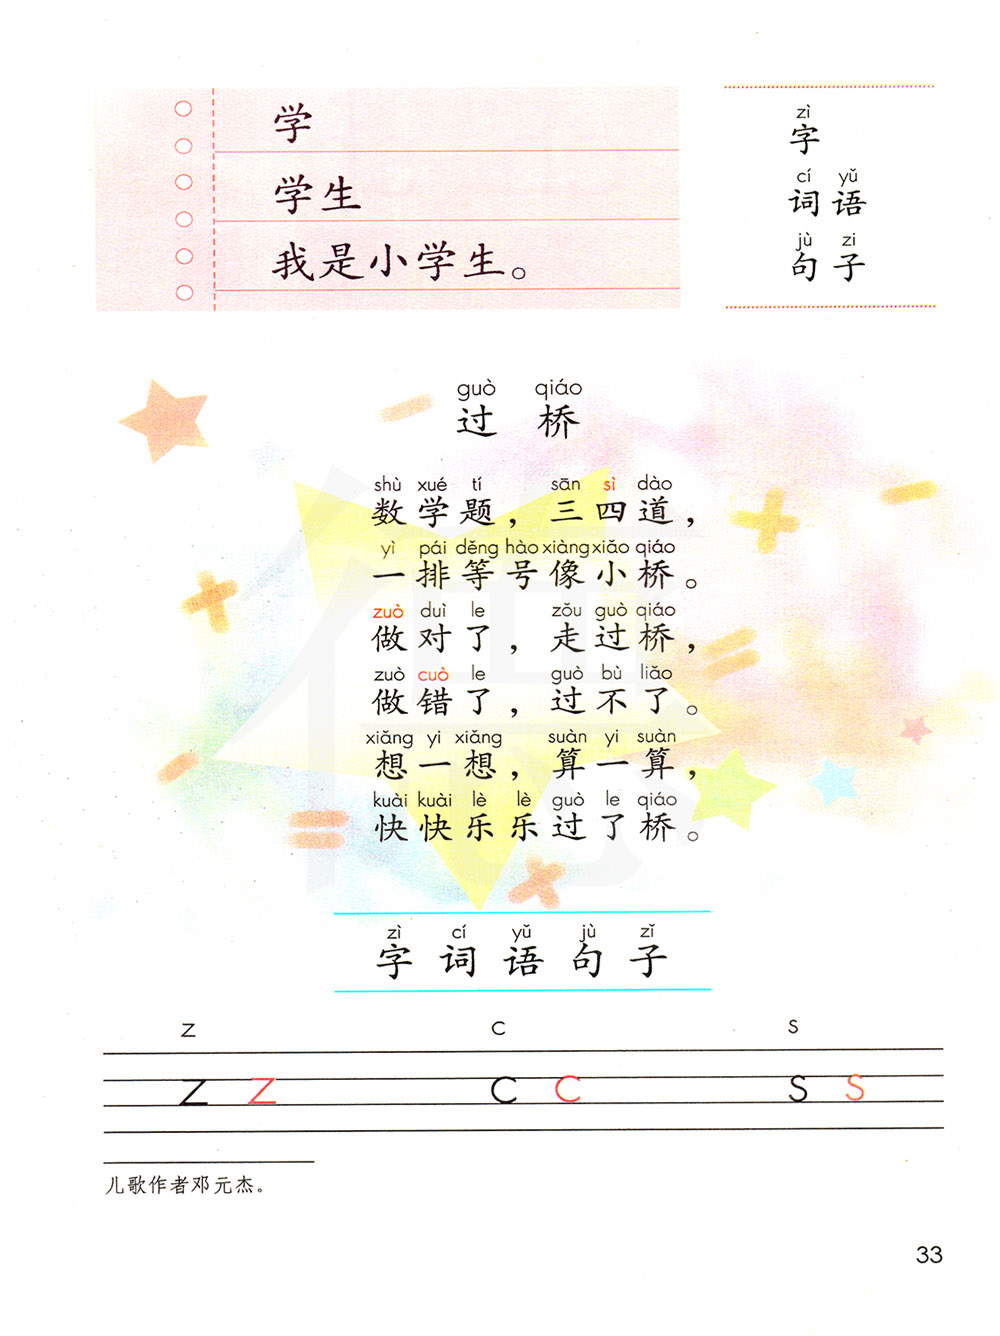 学
学生
我是小学生。
zì
字
cí yǔ
词语
jù zi
句子
guò qiáo
过 桥
shù xué tí sān sì dào
数学题，三四道，
yì pái děng hào xiàng xiǎo qiáo
一排等号像小桥。
zuò duì le zǒu guò qiáo
做对了，走过桥，
zuò cuò le guò bù liǎo
做错了，过不了。
xiǎng yi xiǎng suàn yi suàn
想一想，算一算，
kuài kuài lè lè guò le qiáo
快快乐乐过了桥。
zì cí yǔ jù zǐ
字 词 语 句 子
z c s
z z c c s s
儿歌作者邓元杰。
33